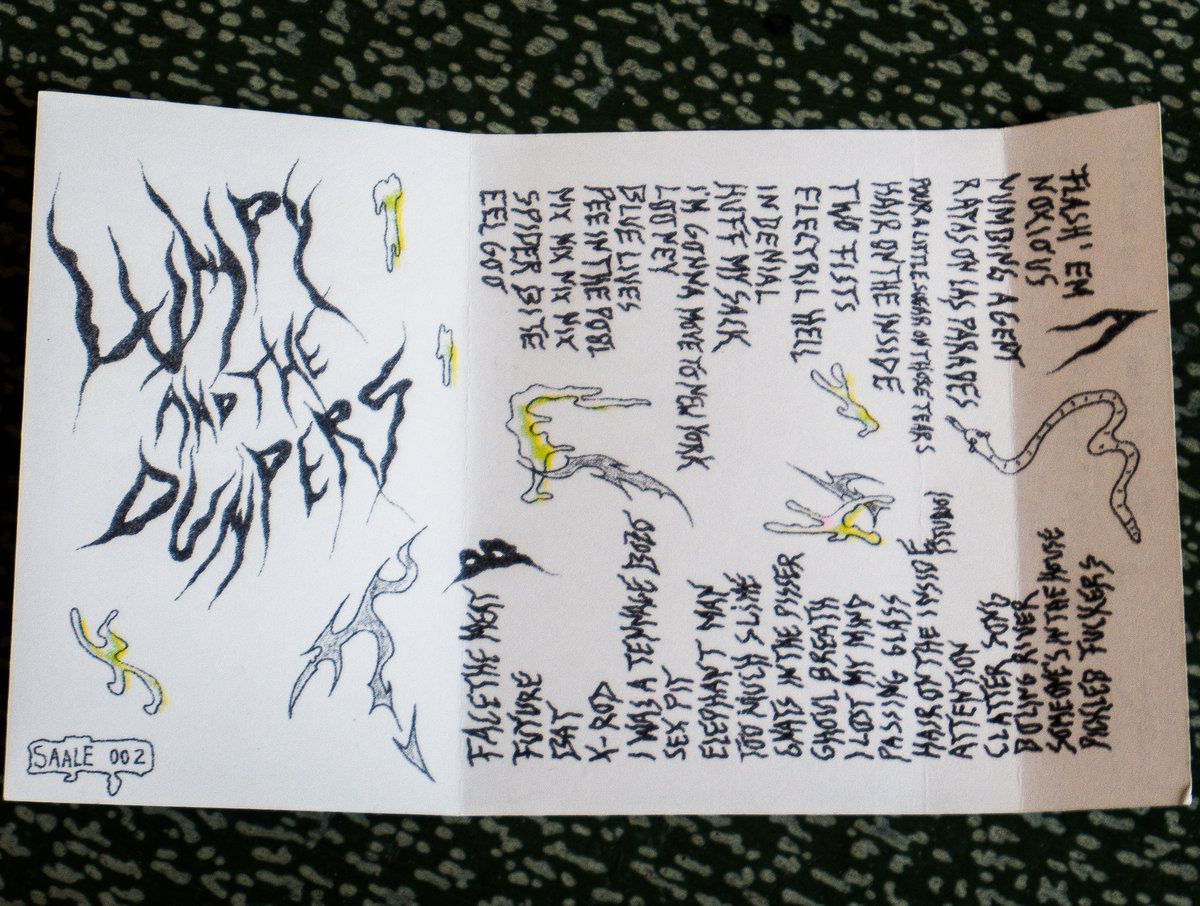 LUMPY
AND THE
DUMPERS
SAALE 002
A
FLASH' EM
NOXIOUS
NUMBING AGENT
RATAS ON LAS PARADES
POUR A LITTLE SUGAR ON THOSE TEARS
HAIR ON THE INSIDE
TWO FISTS
ELECTRIC HELL
IN DENIAL
HUFF MY SACK
I'M GONNA MOVE TO NEW YORK
LOONEY
BLUE LIVES
PEE IN THE POOL
NIX NIX NIX NIX
SPIDER BITE
EEL GOD
B
PICKLED FUCKERS
SOMEONE'S IN THE HOUSE
BOILING RIVER
CLATTER SONG
ATTENTION
HAIR ON THE INSIDE STUDIOS
PASSING GLASS
I LOST MY MIND
GHOUL BREATH
GNATS IN THE PISSER
TOO MUCH SLIME
ELEPHANT MAN
SEX PIT
I WAS A TEENAGE BOZO
X-ROD
BAT
FUTURE
FACE THE MEAT